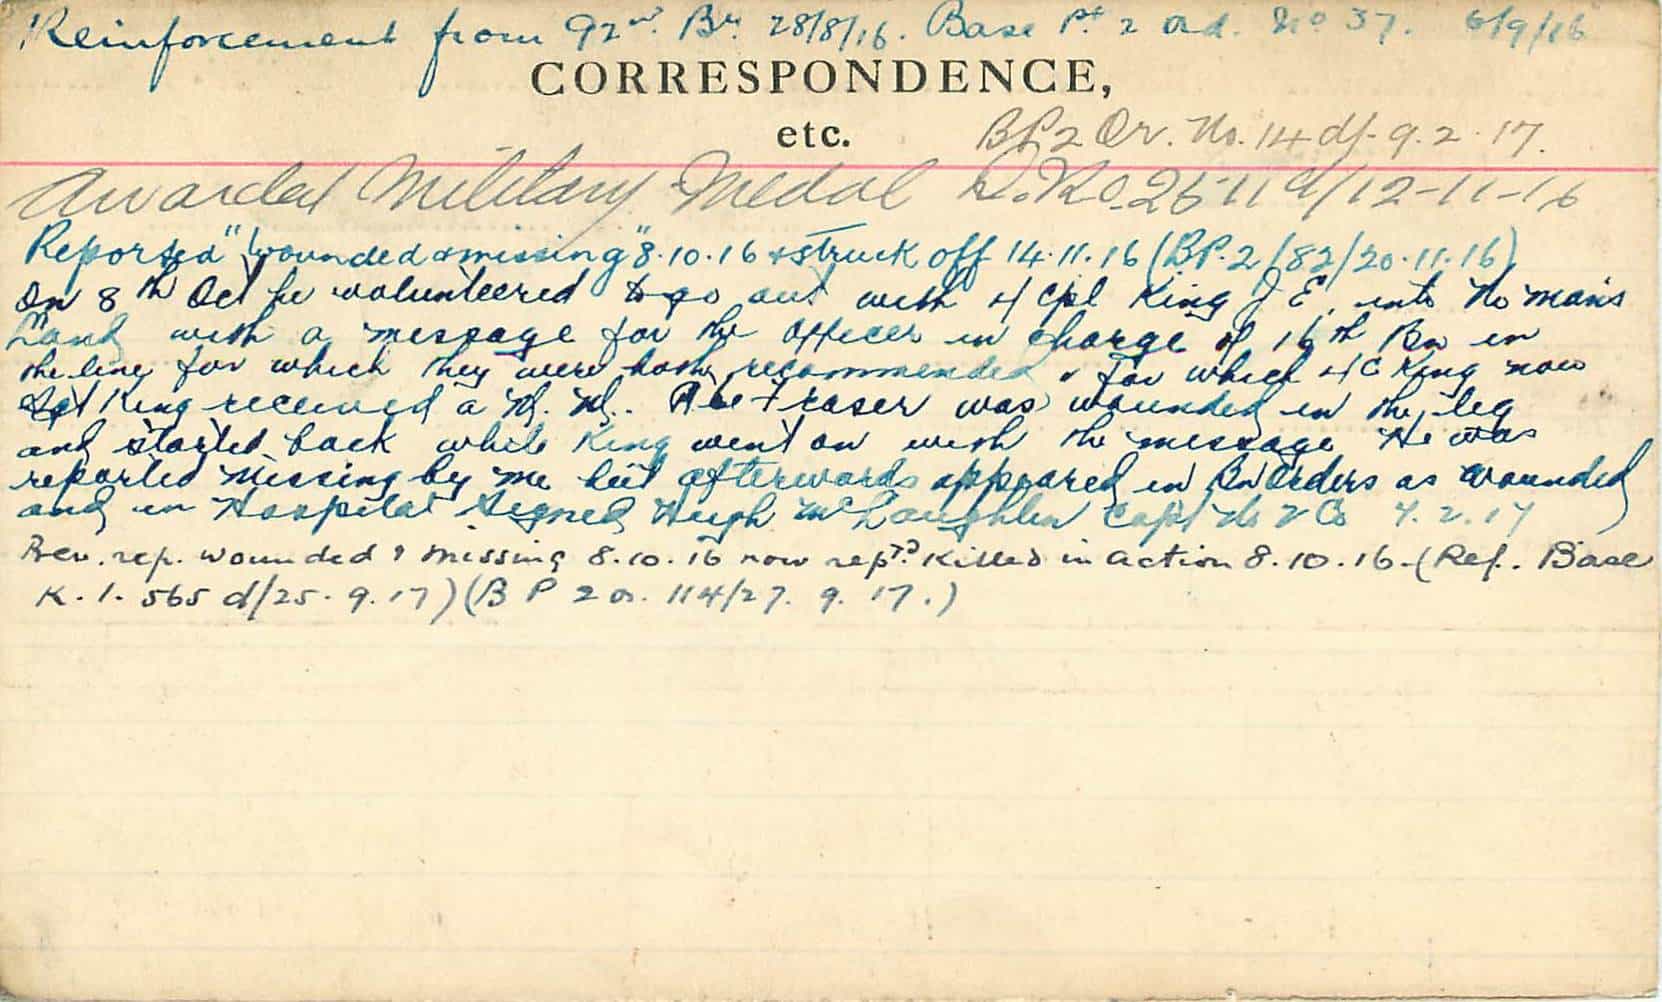 Reinforcement from 92nd. Bn. 28/8/16. Base Pt 2 Ord. No 37. 6/9/16
CORRESPONDENCE,
etc. BP2 Or. No. 14 d/- 9.2.17.
Awarded Military Medal R.O. 2511 d/12-11-16
Reported "wounded & missing" 8.10.16 & struck off 14.11.16 (BP.2/82/20.11.16)
On 8th Oct he volunteered to go out with L/Cpl King J E. into No man's
Land with a message for the officer in charge of 16th Bn in
the line for which they were both recommended & for which L/C King now
Sgt King received a M. M.. Pte Fraser was wounded in the leg
and started back while King went on with the message He was
reported missing by me but afterwards appeared in Bn Orders as wounded
and in Hospital Signed Hugh McLaughlin Capt No 2 Co 7.2.17
Prev. rep. wounded & missing 8.10.16 now rep'd Killed in action 8.10.16-(Ref. Base
K.1.565 d/25.9.17)(B P 2 or. 114/27.9.17.)